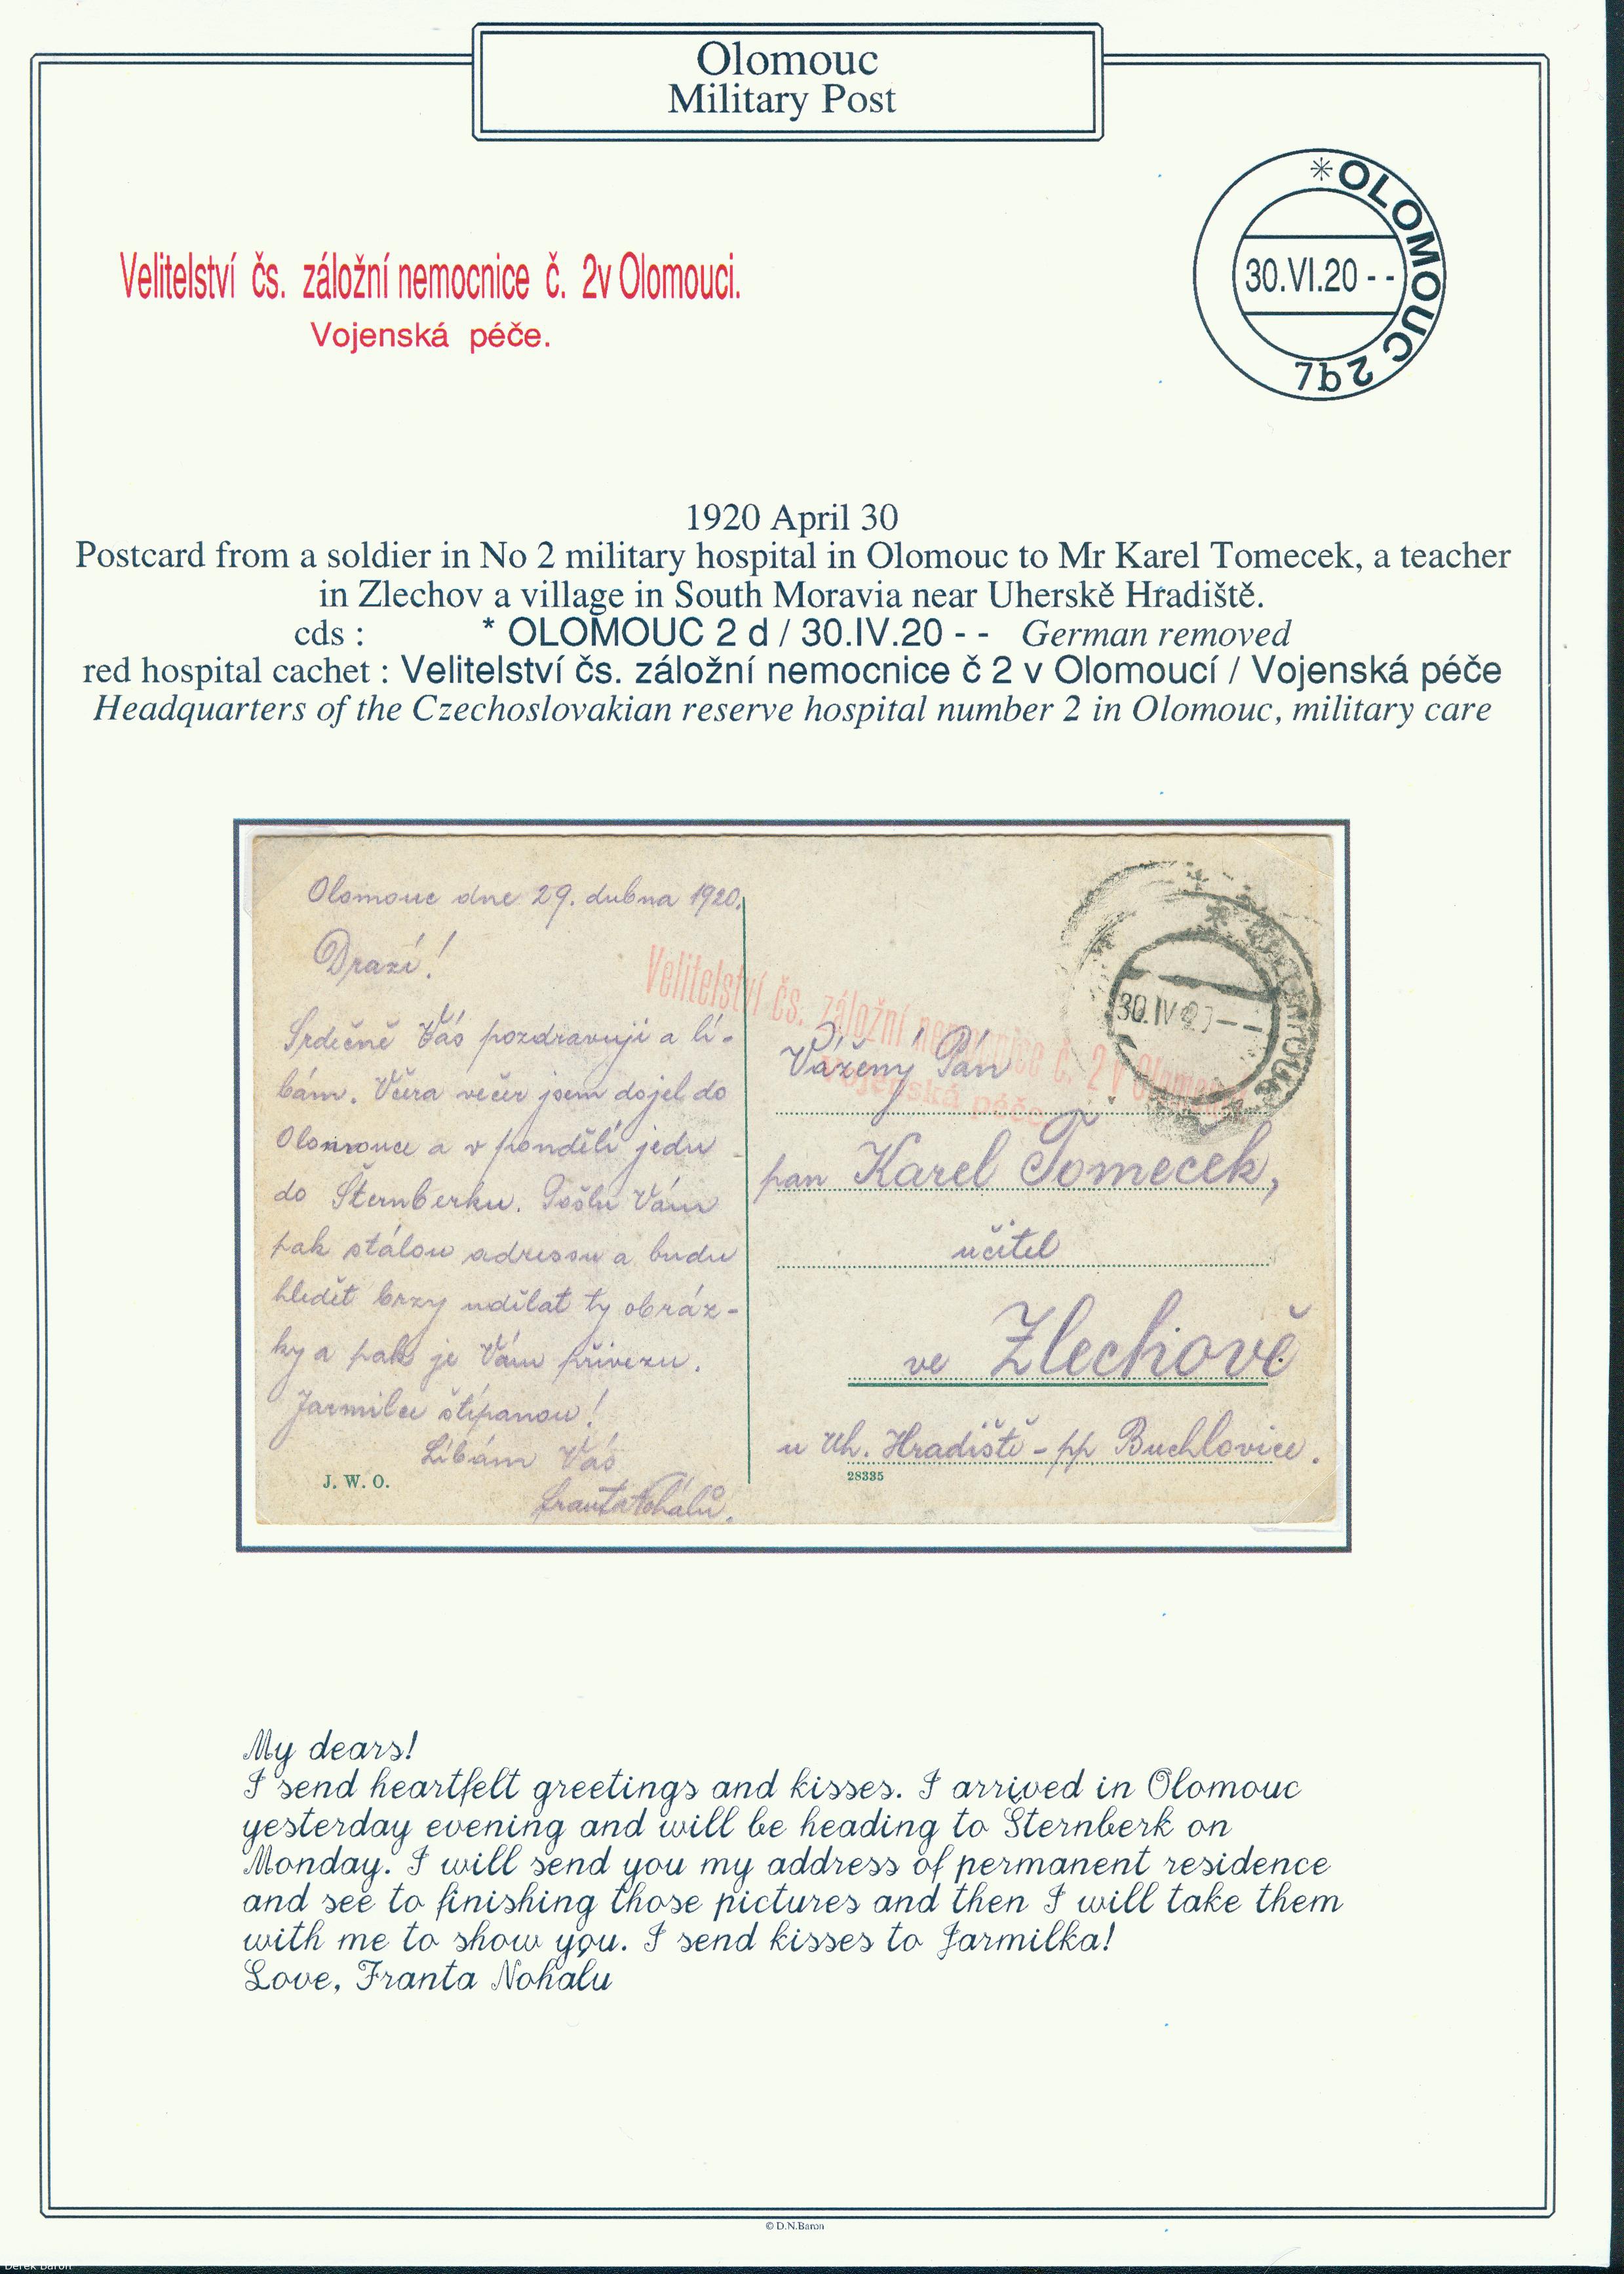 Olomouc
Military Post
Velitelství čs. záložní nemocnice č. 2v Olomouci.
Vojenská péče.
*OLOMOUC 2
30.VI.20 - -
1920 April 30
Postcard from a soldier in No 2 military hospital in Olomouc to Mr Karel Tomecek, a teacher
in Zlechov a village in South Moravia near Uherskě Hradiště.
cds : * OLOMOUC 2 d / 30.IV.20 - - German removed
red hospital cachet : Velitelství čs. záložní nemocnice č 2 v Olomoucí / Vojenská péče
Headquarters of the Czechoslovakian reserve hospital number 2 in Olomouc, military care
Olomouc dne 29. dubna 1920.
Drazí!
Srdečně Vás pozdravuji a lí-
bám. Včera večer jsem dojel do
Olomouce a v pondělí jedu
do Šternberku. Pošlu Vám
pak stálou adressu a budu
hledět brzy udělat ty obráz-
ky a pak je Vám přivezu.
Jarmilku štípanou!
Líbám Vás
Franta Nohálů.
J. W. O.
Velitelství čs. záložní nemocnice č. 2 v Olomouci
Vojenská péče
30.IV.20 - -
OLOMOUC
Vážený Pán
pan Karel Tomeček,
učitel
ve Zlechově
u Uh. Hradiště - pp Buchlovice.
28335
My dears!
I send heartfelt greetings and kisses. I arrived in Olomouc
yesterday evening and will be heading to Šternberk on
Monday. I will send you my address of permanent residence
and see to finishing those pictures and then I will take them
with me to show you. I send kisses to Jarmilka!
Love, Franta Nohalu
© D.N.Baron
Derek Baron